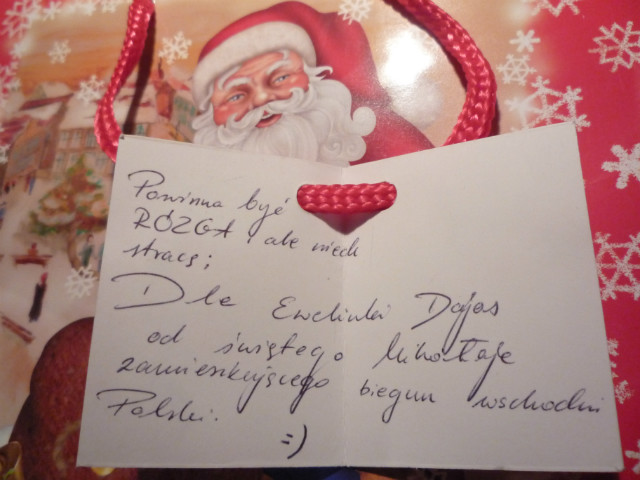 Powinna być
RÓZGA, ale niech
stracę;
Dla Ewelinki Dajas
od świętego Mikołaja
zamieszkującego biegun wschodni
Polski.
=)